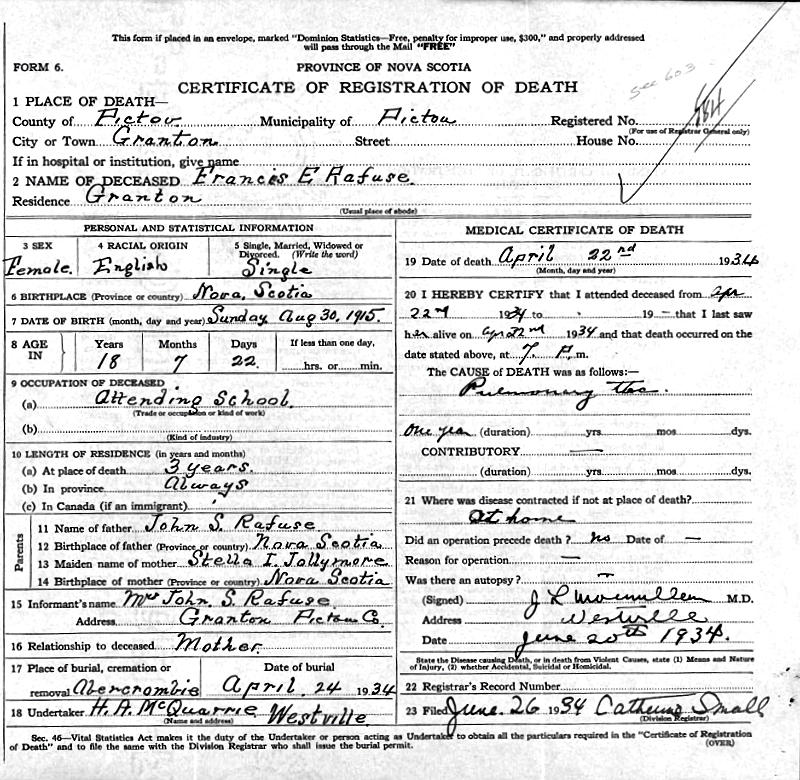 This form if placed in an envelope, marked "Dominion Statistics—Free, penalty for improper use, $300," and properly addressed
will pass through the Mail "FREE"
FORM 6. PROVINCE OF NOVA SCOTIA
see 603
CERTIFICATE OF REGISTRATION OF DEATH
1 PLACE OF DEATH—
County of Pictou Municipality of Pictou Registered No.
(For use of Registrar General only)
City or Town Granton Street House No.
If in hospital or institution, give name
2 NAME OF DECEASED Francis E Rafuse.
Residence Granton
(Usual place of abode)
PERSONAL AND STATISTICAL INFORMATION
3 SEX 4 RACIAL ORIGIN 5 Single, Married, Widowed or
Divorced. (Write the word)
Female. English Single
6 BIRTHPLACE (Province or country) Nova Scotia
7 DATE OF BIRTH (month, day and year) Sunday Aug 30, 1915.
8 AGE IN Years Months Days If less than one day,
18 7 22. hrs. or min.
9 OCCUPATION OF DECEASED
(a) Attending School.
(Trade or occupation or kind of work)
(b)
(Kind of industry)
10 LENGTH OF RESIDENCE (in years and months)
(a) At place of death 3 years.
(b) In province Always
(c) In Canada (if an immigrant)
Parents
11 Name of father John S. Rafuse
12 Birthplace of father (Province or country) Nova Scotia
13 Maiden name of mother Stella I. Jollymore
14 Birthplace of mother (Province or country) Nova Scotia
15 Informant's name Mrs John S. Rafuse
Address Granton Pictou Co.
16 Relationship to deceased Mother.
17 Place of burial, cremation or Date of burial
removal Abercrombie April 24 1934
18 Undertaker H. A. McQuarrie Westville
(Name and address)
MEDICAL CERTIFICATE OF DEATH
19 Date of death April 22nd 1934
(Month, day and year)
20 I HEREBY CERTIFY that I attended deceased from Apr
22nd 1934 to 19 — that I last saw
her alive on Apr 22nd 1934 and that death occurred on the
date stated above, at 7 P.m.
The CAUSE of DEATH was as follows:—
Pulmonary tbc.
One year (duration) yrs. mos dys.
CONTRIBUTORY —
(duration) yrs. mos dys.
21 Where was disease contracted if not at place of death?
At home
Did an operation precede death? no Date of —
Reason for operation —
Was there an autopsy? —
(Signed) J L M.D.
Address Westville
Date June 20th 1934.
State the Disease causing Death, or in death from Violent Causes, state (1) Means and Nature
of Injury, (2) whether Accidental, Suicidal or Homicidal.
22 Registrar's Record Number
23 Filed June. 26 1934 Catherine Small
(Division Registrar)
Sec. 46—Vital Statistics Act makes it the duty of the Undertaker or person acting as Undertaker to obtain all the particulars required in the "Certificate of Registration
of Death" and to file the same with the Division Registrar who shall issue the burial permit. (OVER)